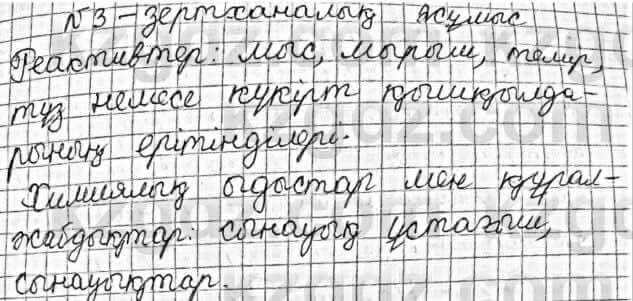 №3 – зертханалық жұмыс
Реактивтер: мыс, мырыш, темір,
тұз немесе күкірт қышқылда-
рының ерітінділері.
Химиялық ыдыстар мен құрал-
жабдықтар: сынауық ұстағыш,
сынауықтар.